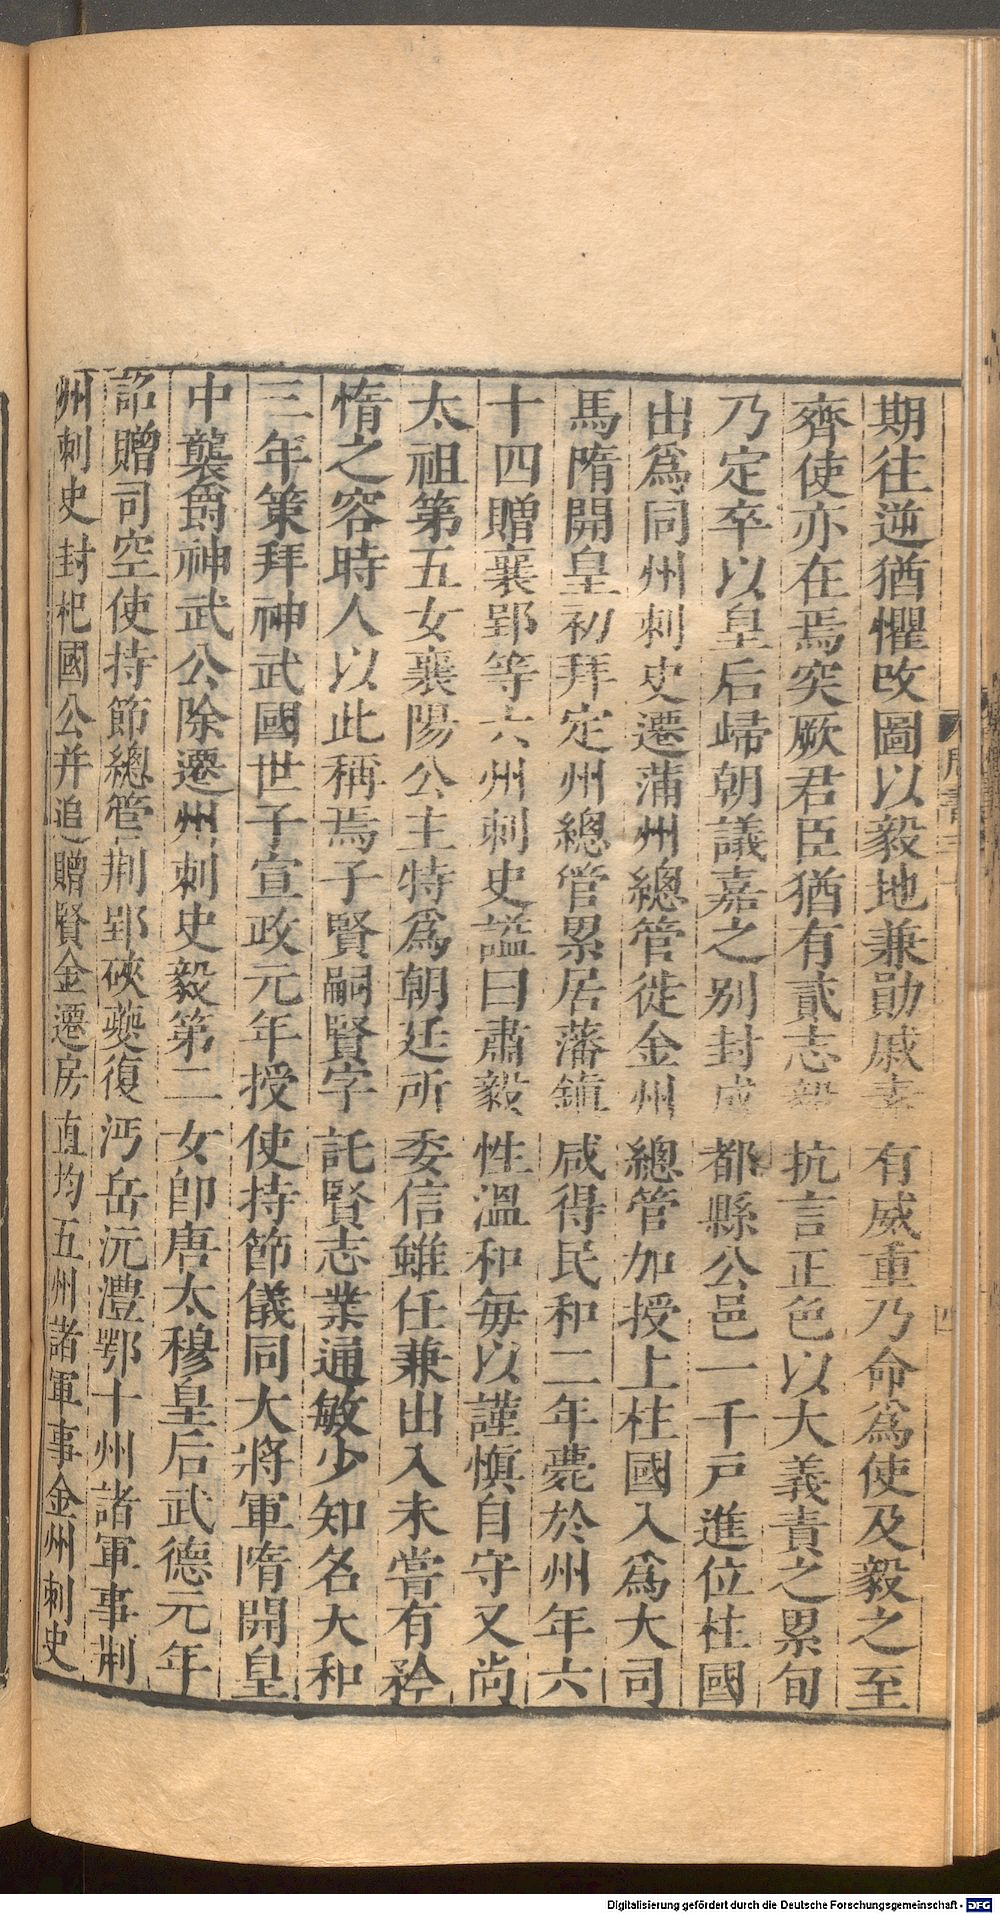 期往逆猶懼改圖以毅地兼勛戚素有威重乃命爲使及毅之至
齊使亦在焉突厥君臣猶有貳志毅抗言正色以大義責之累旬
乃定卒以皇后歸朝議嘉之别封成都縣公邑一千戸進位柱國
出爲同州刺史遷蒲州總管徙金州總管加授上柱國入爲大司
馬隋開皇初拜定州總管累居藩鎮咸得民和二年薨於州年六
十四贈襄郢等六州刺史謚曰肅毅性溫和每以謹慎自守又尚
太祖第五女襄陽公主特爲朝廷所委信雖任兼出入未嘗有矜
惰之容時人以此稱焉子賢嗣賢字託賢志業通敏少知名大和
三年策拜神武國世子宣政元年授使持節儀同大將軍隋開皇
中襲爵神武公除遷州刺史毅第二女卽唐太穆皇后武德元年
詔贈司空使持節總管荆郢硤夔復沔岳沅澧鄂十州諸軍事荆
州刺史封杞國公并追贈賢金遷房直均五州諸軍事金州刺史
周書三十
四
Digitalisierung gefördert durch die Deutsche Forschungsgemeinschaft - DFG